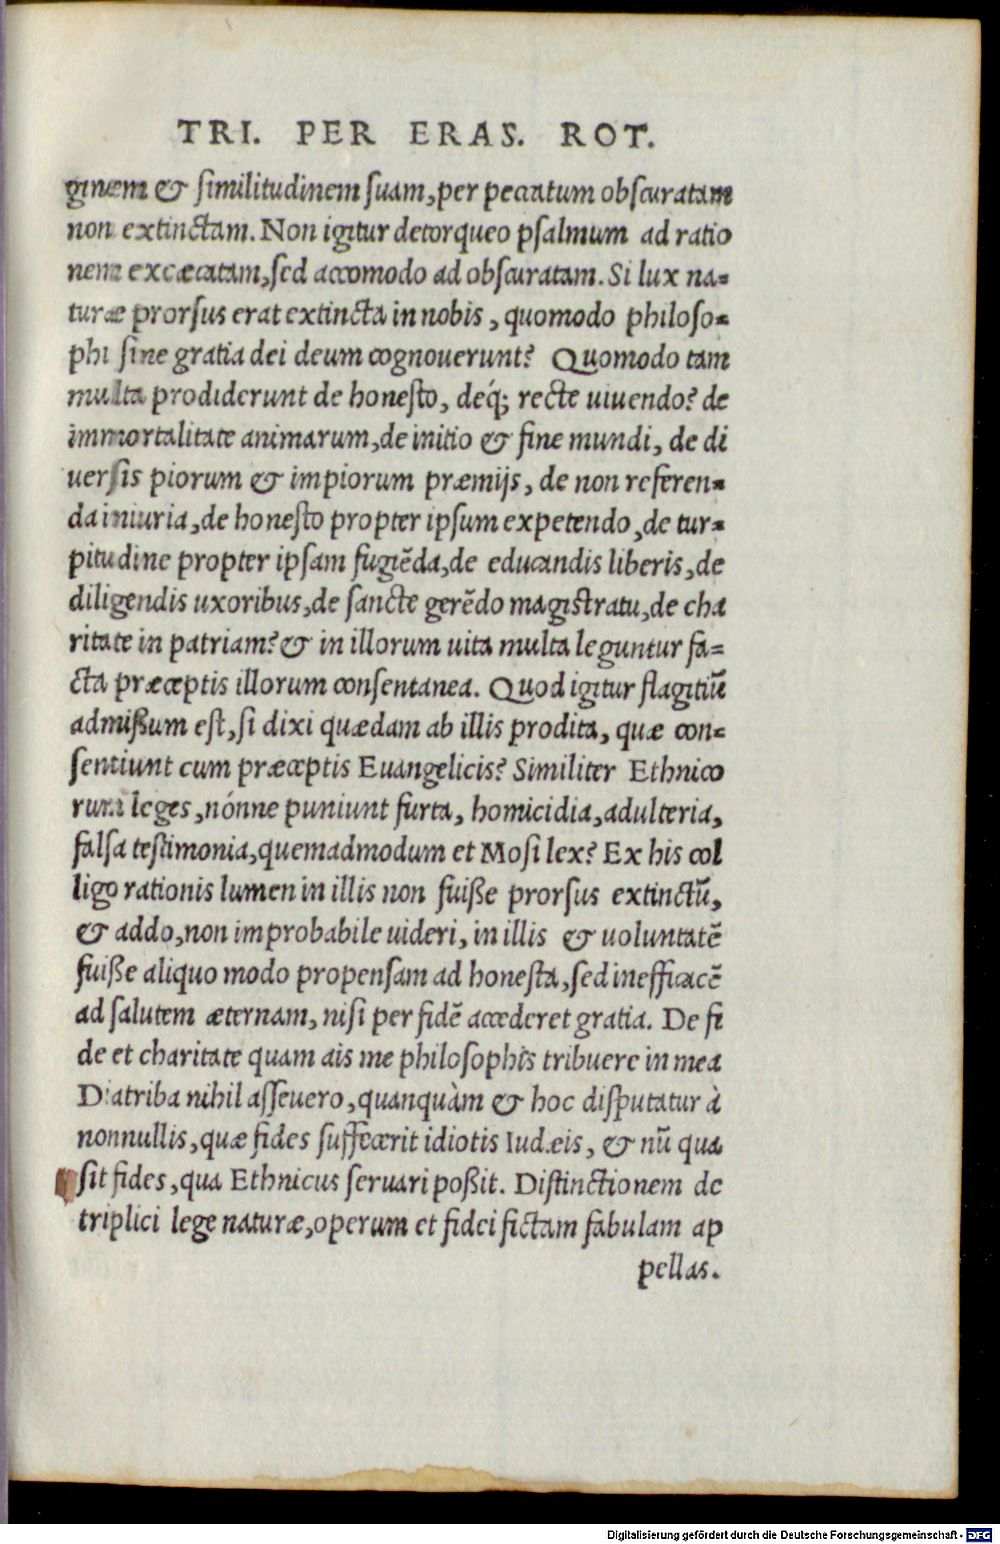 TRI. PER ERAS. ROT.
ginem & ſimilitudinem ſuam, per peccatum obſcuratam
non extinctam. Non igitur detorqueo pſalmum ad ratio
nem excæcatam, ſed accomodo ad obſcuratam. Si lux na-
turæ prorſus erat extincta in nobis, quomodo philoſo-
phi ſine gratia dei deum cognouerunt? Quomodo tam
multa prodiderunt de honeſto, deq́; recte uiuendo? de
immortalitate animarum, de initio & fine mundi, de di
uerſis piorum & impiorum præmijs, de non referen-
da iniuria, de honeſto propter ipſum expetendo, de tur-
pitudine propter ipſam fugiẽda, de educandis liberis, de
diligendis uxoribus, de ſancte gerẽdo magiſtratu, de cha
ritate in patriam? & in illorum uita multa leguntur fa-
cta præceptis illorum conſentanea. Quod igitur flagitiũ
admißum eſt, ſi dixi quædam ab illis prodita, quæ con-
ſentiunt cum præceptis Euangelicis? Similiter Ethnico
rum leges, nónne puniunt furta, homicidia, adulteria,
falſa teſtimonia, quemadmodum et Moſi lex? Ex his col
ligo rationis lumen in illis non fuiße prorſus extinctũ,
& addo, non improbabile uideri, in illis & uoluntatẽ
fuiße aliquo modo propenſam ad honeſta, ſed inefficacẽ
ad ſalutem æternam, niſi per fidẽ accederet gratia. De fi
de et charitate quam ais me philoſophis tribuere in mea
Diatriba nihil aſſeuero, quanquàm & hoc diſputatur à
nonnullis, quæ fides ſuffecerit idiotis Iudæis, & nũ qua
ſit fides, qua Ethnicus ſeruari poßit. Diſtinctionem de
triplici lege naturæ, operum et fidei fictam fabulam ap
pellas.
Digitalisierung gefördert durch die Deutsche Forschungsgemeinschaft - DFG